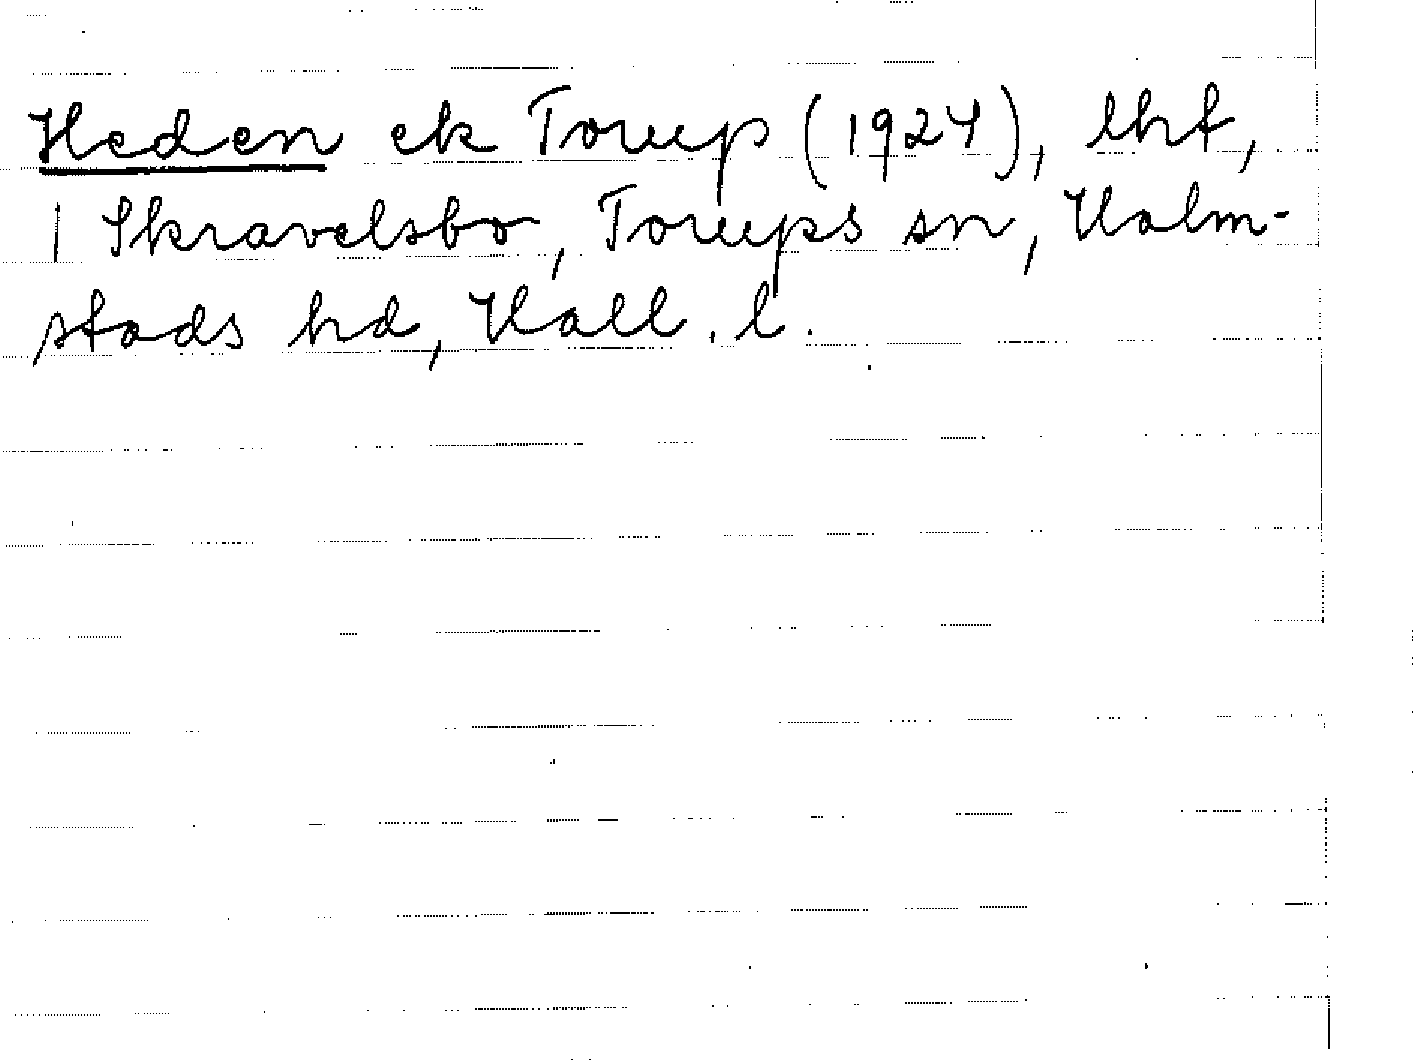 Heden ek Torup (1924), lht,
| Skravelsbo, Torups sn, Halm-
stads hd, Hall. l.